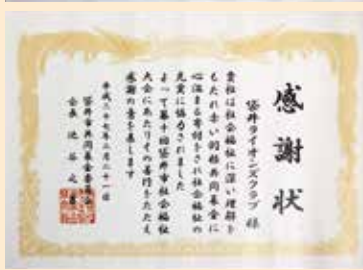 感謝状
袋井ライオンズクラブ 様
貴社は社会福祉に深い理解を
もたれ赤い羽根共同募金に
心温まる寄付をされ社会福祉の
充実に協力されました
よって第十回袋井市社会福祉
大会にあたりその善行をたたえ
感謝の意を表します
平成二十七年二月二十一日
袋井市共同募金委員会
会長 池谷